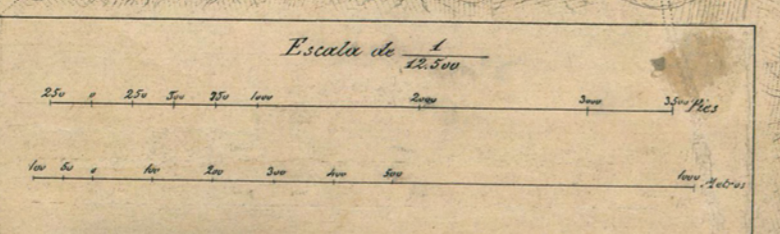 Escala de 1
12.500
250 0 250 500 750 1000 2000 3000 3500 Pies
100 50 0 100 200 300 400 500 1000 Metros